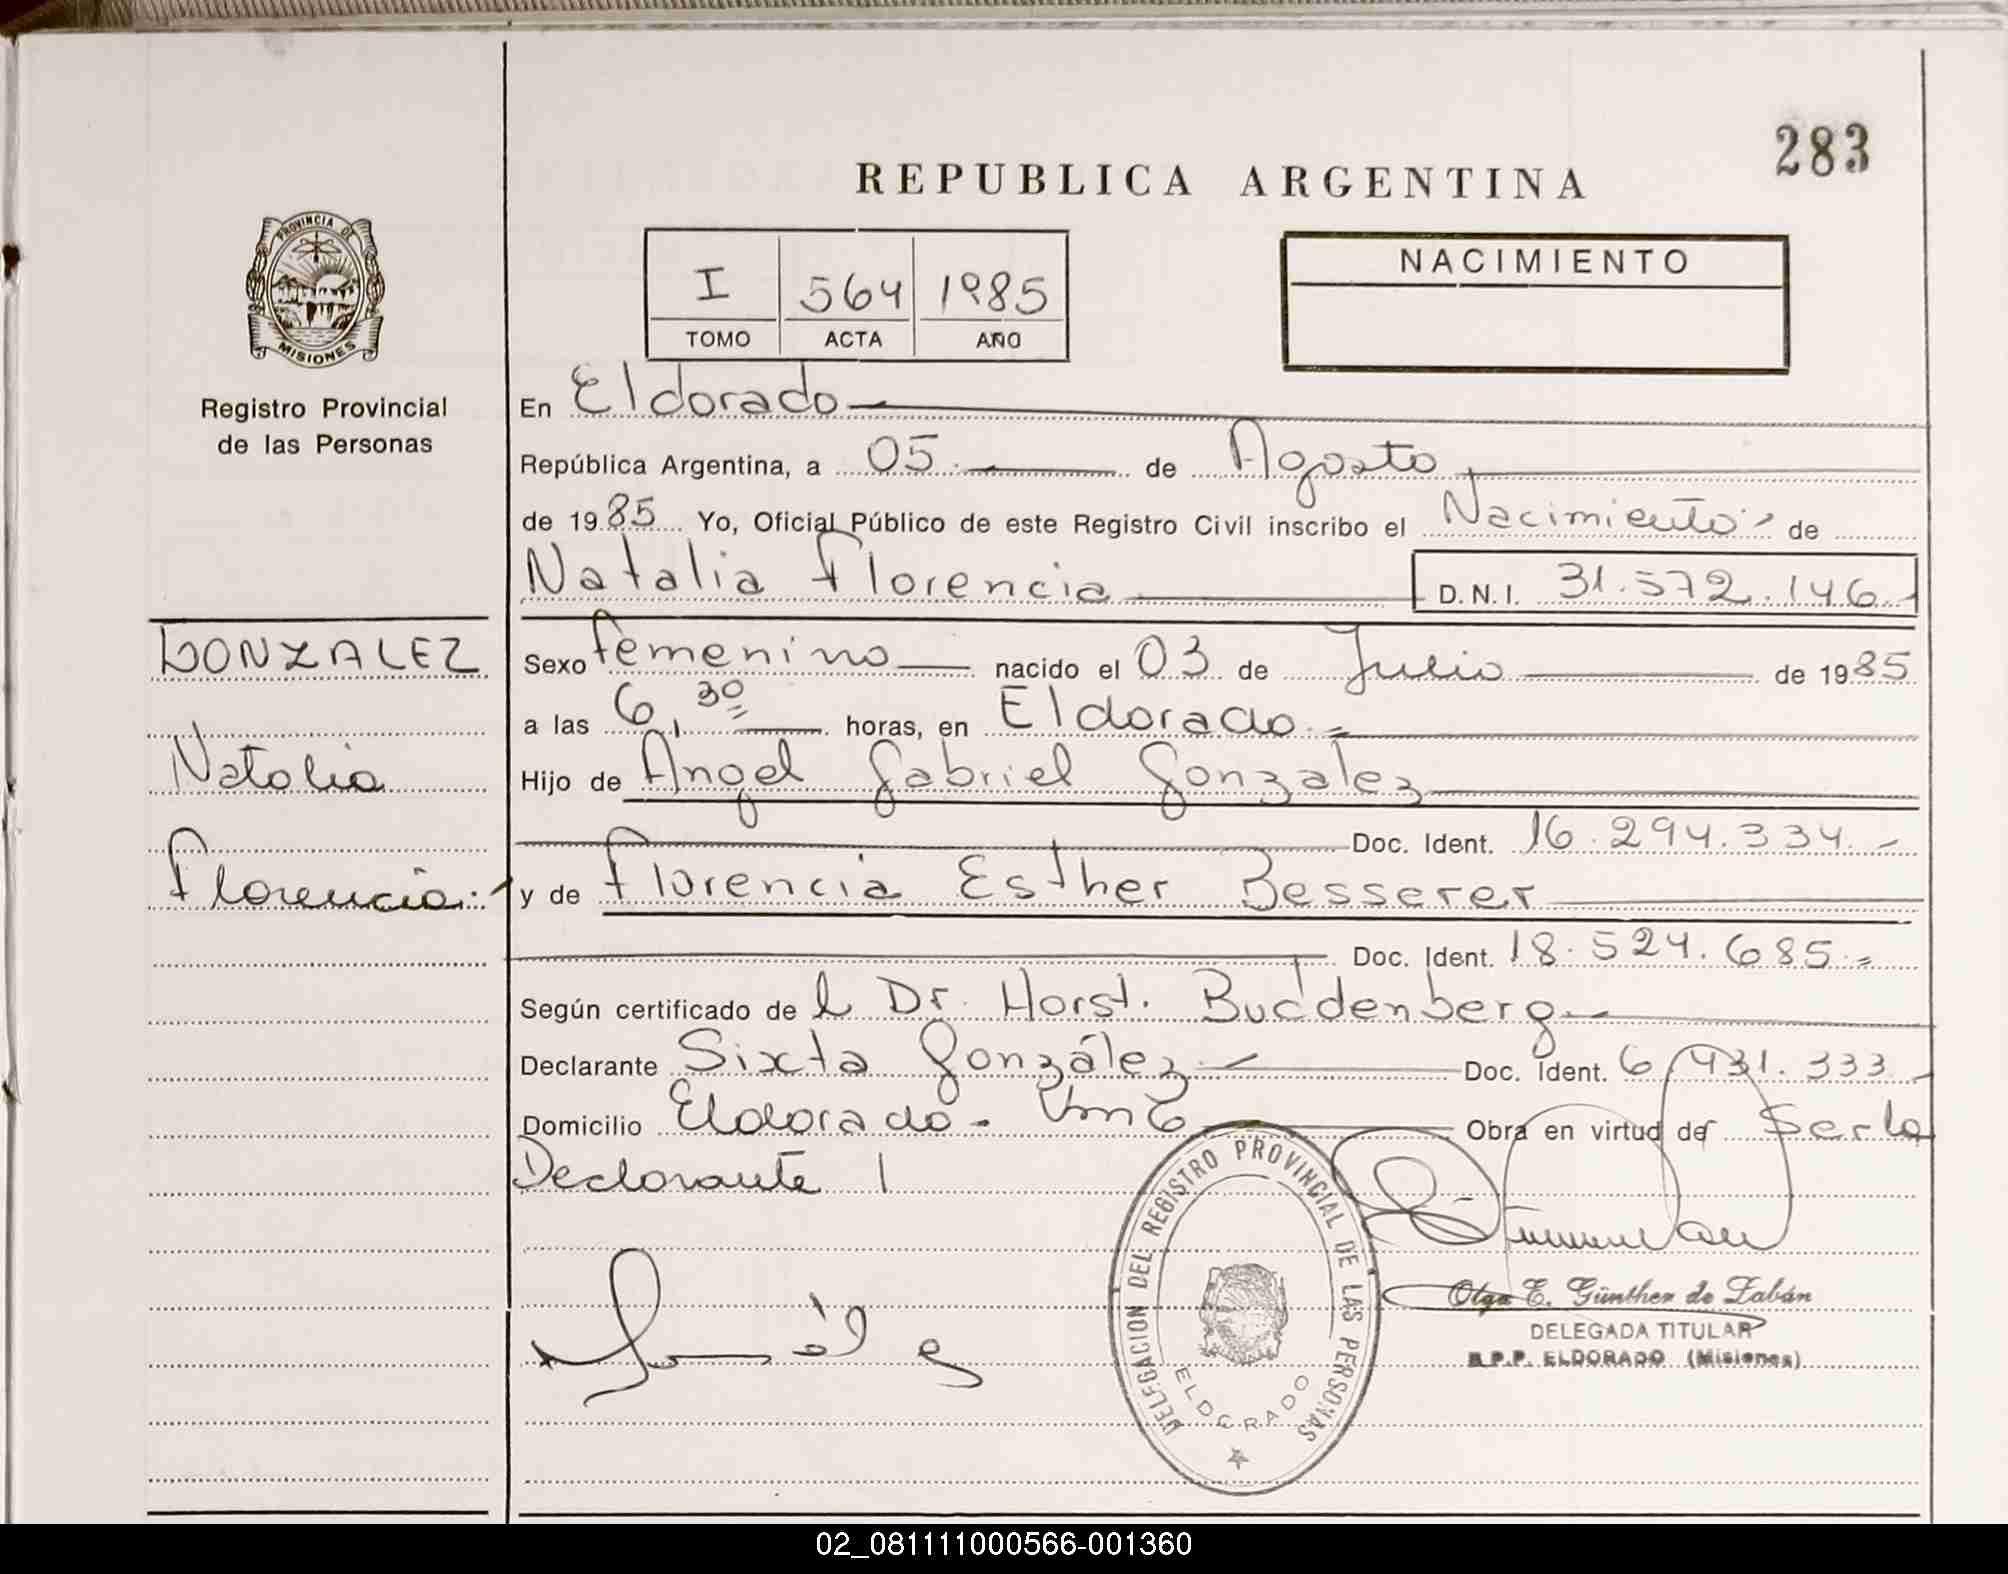 283
REPUBLICA ARGENTINA
PROVINCIA DE
MISIONES
Registro Provincial
de las Personas
I 564 1985
TOMO ACTA AÑO
NACIMIENTO
En Eldorado
República Argentina, a 05 de Agosto
de 1985 Yo, Oficial Público de este Registro Civil inscribo el Nacimiento de
Natalia Florencia D.N.I. 31.572.146
GONZALEZ
Natalia
Florencia
Sexo femenino nacido el 03 de Julio de 1985
a las 6,30 horas, en Eldorado
Hijo de Angel Gabriel Gonzalez
Doc. Ident. 16.294.334.-
y de Florencia Esther Besserer
Doc. Ident. 18.524.685.=
Según certificado de l Dr. Horst. Buddenberg
Declarante Sixta González Doc. Ident. 6.931.333
Domicilio Eldorado - Km 6 Obra en virtud de Ser la
Declarante
DELEGACION DEL REGISTRO PROVINCIAL DE LAS PERSONAS
ELDORADO
Olga E. Günther de Labán
DELEGADA TITULAR
R.P.P. ELDORADO (Misiones)
02_081111000566-001360